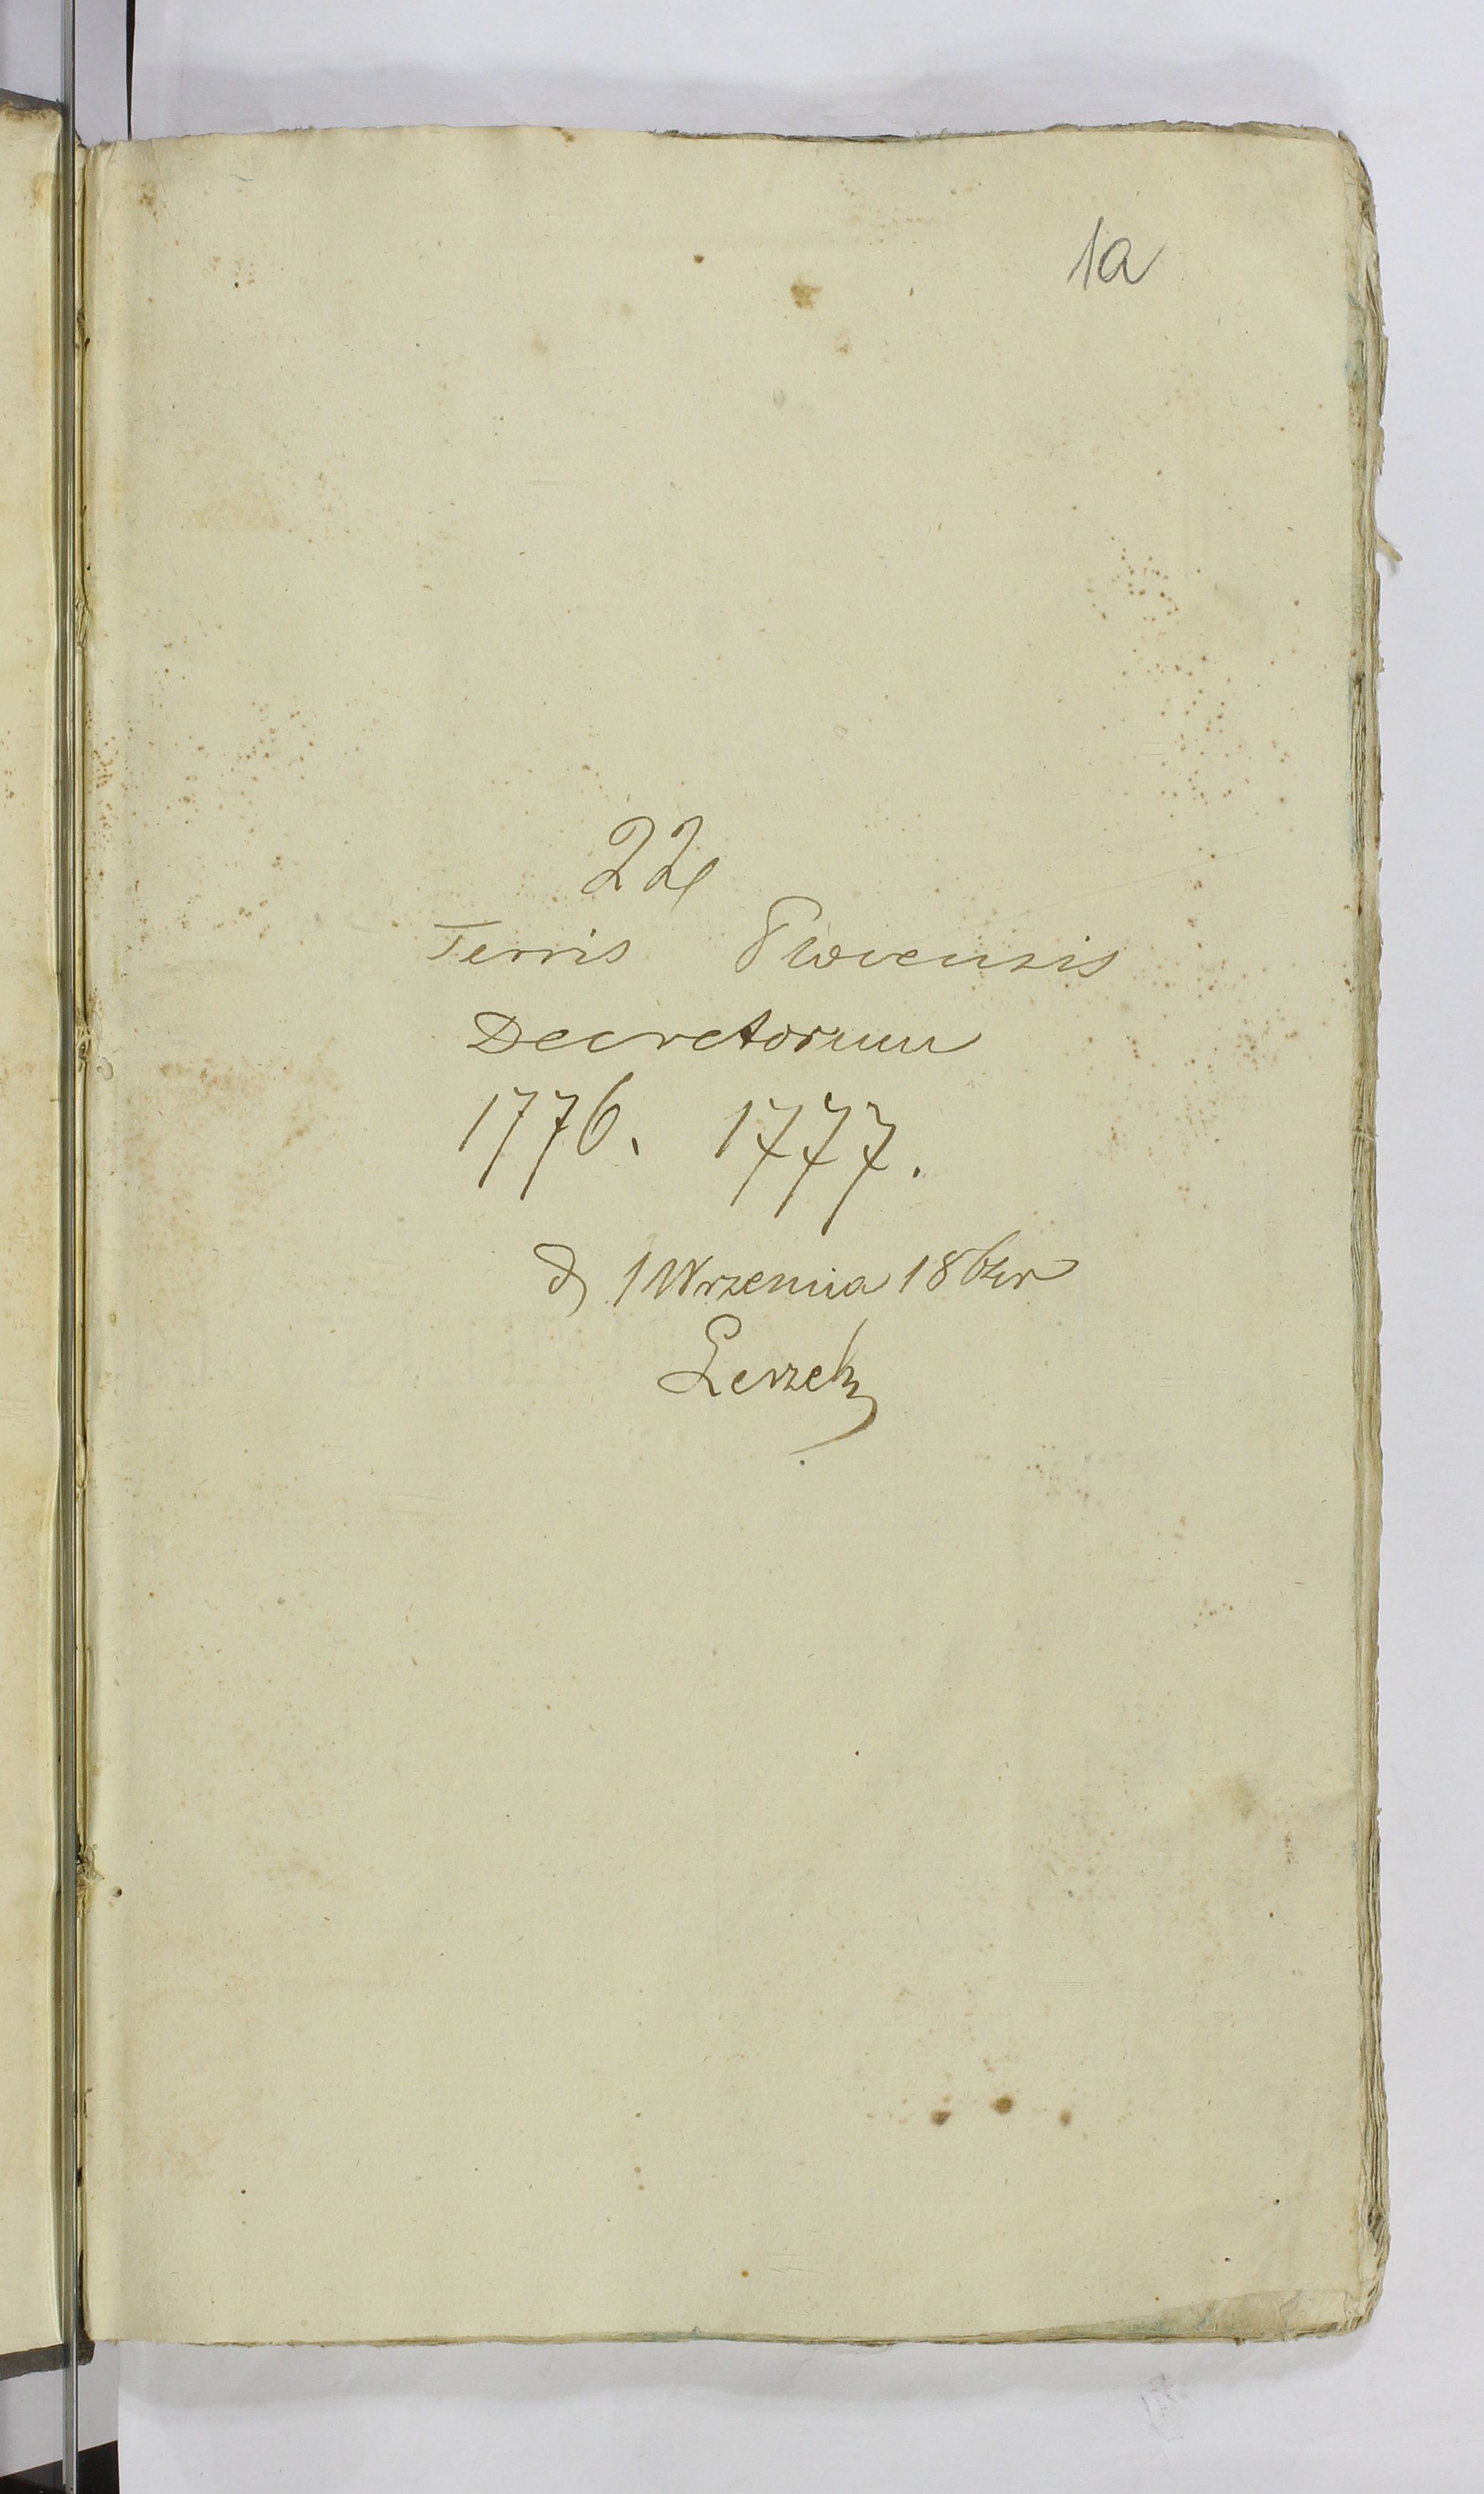 1a
22
Terris Plocensis
Decretorum
1776. 1777.
d 1 Wrzesnia 186